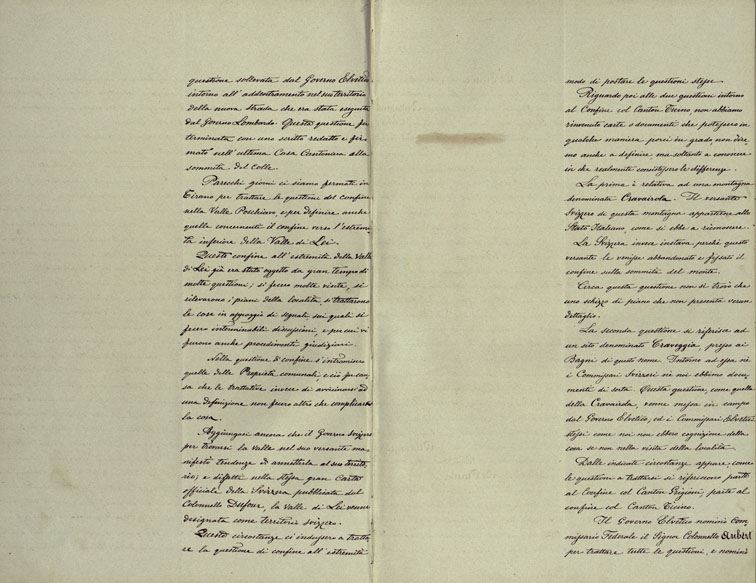 questione sollevata dal Governo Elvetico
intorno all'addentramento nel suo territorio
della nuova strada che era stata eseguita
dal Governo Lombardo. Questa questione fu
terminata con uno scritto redatto e fir-
mato nell'ultima Casa Cantoniera alla
sommità del Colle.
Parecchi giorni ci siamo fermati in
Tirano per trattare le questioni del confine
nella Valle Poschiavo, e per definire anche
quelle concernenti il confine verso l'estremi-
tà inferiore della Valle di Lei.
Questo confine all'estremità della Valle
di Lei già era stato oggetto da gran tempo di
molte questioni; si fecero molte visite, si
rilevarono i piani della località, si trattarono
le cose in appoggio di segnali, sui quali si
fecero interminabili discussioni, e per cui vi
furono anche procedimenti giudiziari.
Nella questione di confine s'intromisero
quelle della Proprietà comunali, e ciò fu cau-
sa che le trattative invece di avvicinarsi ad
una definizione non fecero altro che complicarsi
la cosa.
Aggiungasi ancora che il Governo svizzero
per trovarsi la Valle nel suo versante ma-
nifestò tendenze di annetterla al suo territo-
rio; e difatti nella stessa gran Carta
officiale della Svizzera pubblicata dal
Colonnello Dufour, la Valle di Lei venne
designata come territorio svizzero.
Queste circostanze ci indussero a tratta-
re la questione di confine all'estremità
modo di postare le questioni stesse.
Riguardo poi alle due questioni intorno
al Confine col Canton Ticino, non abbiamo
rinvenuto carte o documenti che potessero in
qualche maniera porci in grado non dire-
mo anche a definire ma soltanto a conoscere
in che realmente consistessero le differenze.
La prima è relativa ad una montagna
denominata Cravairola. Il versante
svizzero di questa montagna appartiene allo
Stato Italiano, come si ebbe a riconoscere.
La Svizzera invece instava perchè questo
versante le venisse abbandonato e fissato il
confine sulla sommità del monte.
Circa questa questione non si trovò che
uno schizzo di piano che non presenta verun
dettaglio.
La seconda questione si riferisce ad
un sito denominato Craveggia, presso ai
Bagni di questo nome. Intorno ad essa nè
i Commissari Svizzeri nè noi ebbimo docu-
menti di sorta. Questa questione, come quella
della Cravairola, venne messa in campo
dal Governo Elvetico, ed i Commissari Elvetici
stessi come noi non ebbero cognizione della
cosa se non nella visita della località.
Dalle indicate circostanze appare, come
le questioni a trattarsi si riferiscono parte
al Confine col Canton Grigioni, parte al
confine col Canton Ticino.
Il Governo Elvetico nominò Com-
missario Federale il Signor Colonnello Aubert
per trattare tutte le questioni, e nominò